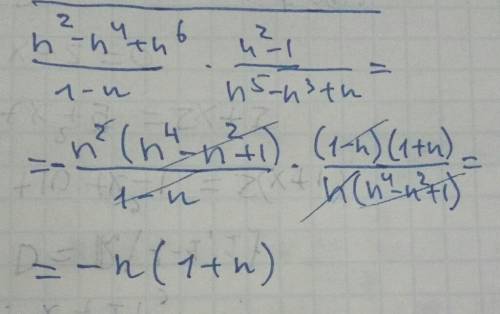 (n² - n⁴ + n⁶)/(1 - n) · (n² - 1)/(n⁵ - n³ + n) =
= - n²(n⁴ - n² + 1)/(1 - n) · (1 - n)(1 + n)/(n(n⁴ - n² + 1)) =
= - n(1 + n)